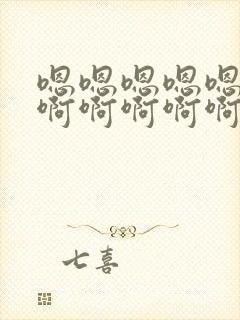 嗯嗯嗯嗯嗯
啊啊啊啊啊
七喜